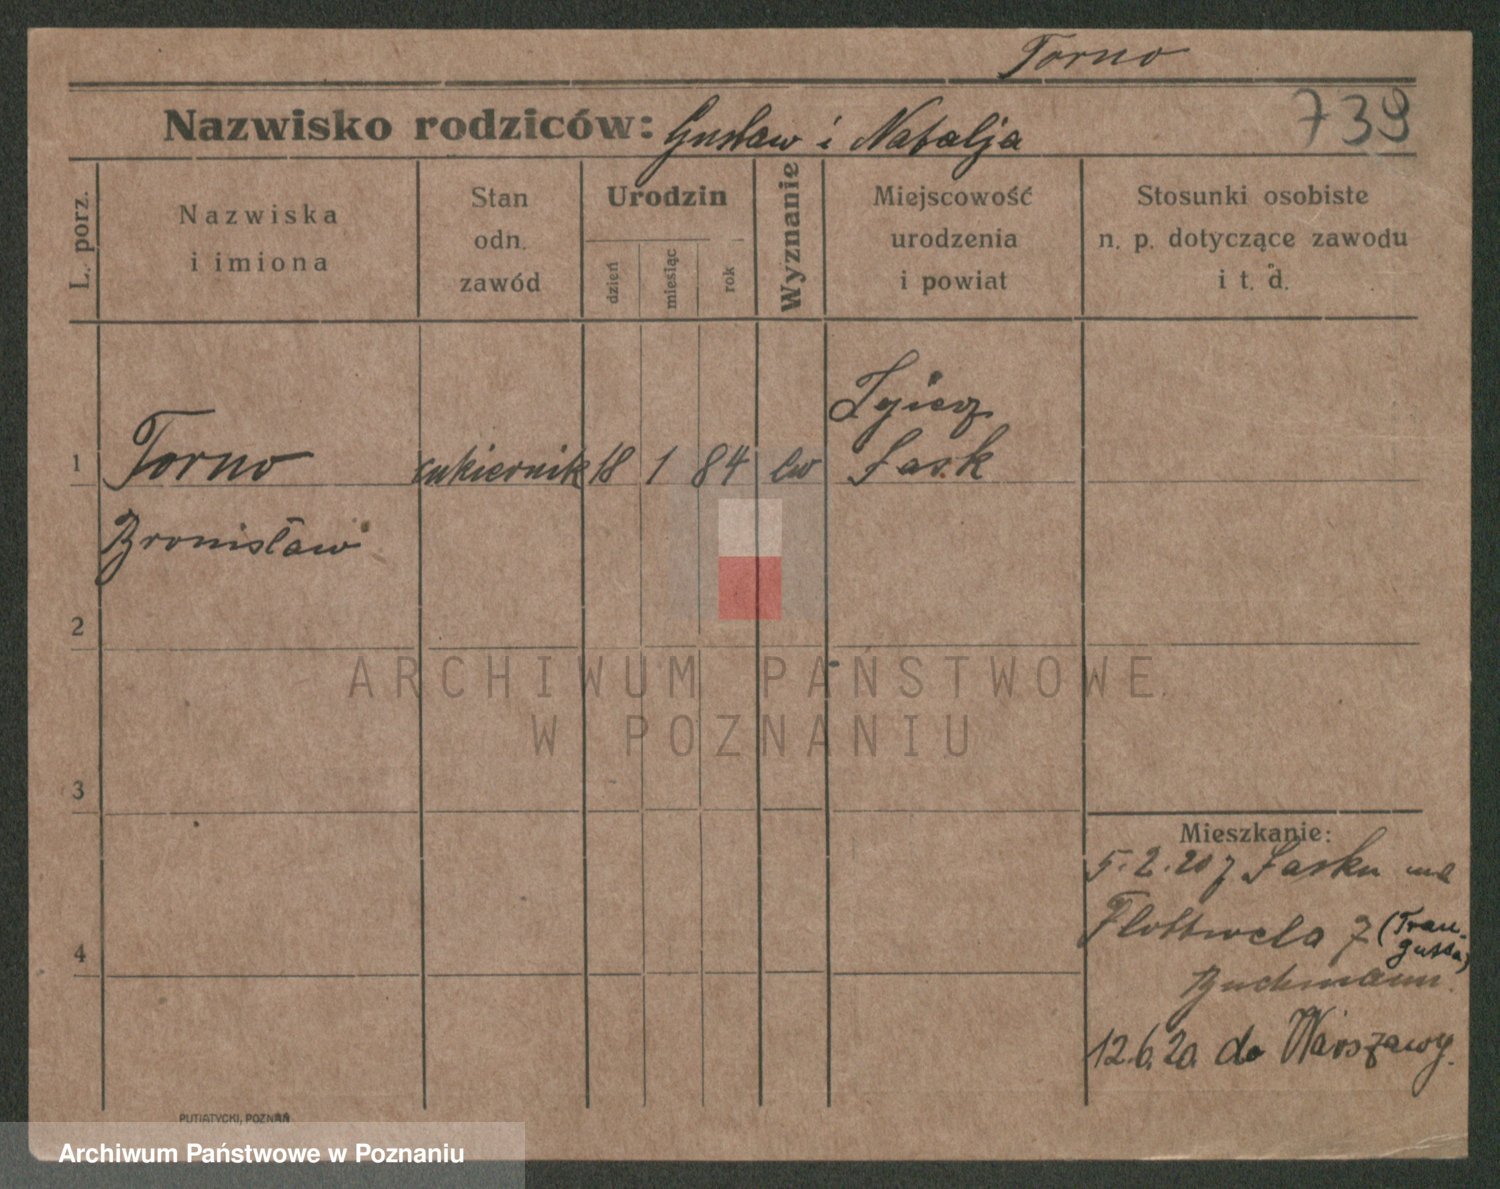 Torno
739
Nazwisko rodziców: Gustaw i Natalja
L. porz.
Nazwiska
i imiona
Stan
odn.
zawód
Urodzin
dzień
miesiąc
rok
Wyznanie
Miejscowość
urodzenia
i powiat
Stosunki osobiste
n. p. dotyczące zawodu
i t. d.
1
Torno
cukiernik
18
1
84
ew
Łask
Bronisław
2
3
4
Mieszkanie:
5.2.20 z Łasku
Flottwela 7
Buchmann.
12.6.20 do Warszawy.
PUTIATYCKI, POZNAŃ
ARCHIWUM PAŃSTWOWE
W POZNANIU
Archiwum Państwowe w Poznaniu